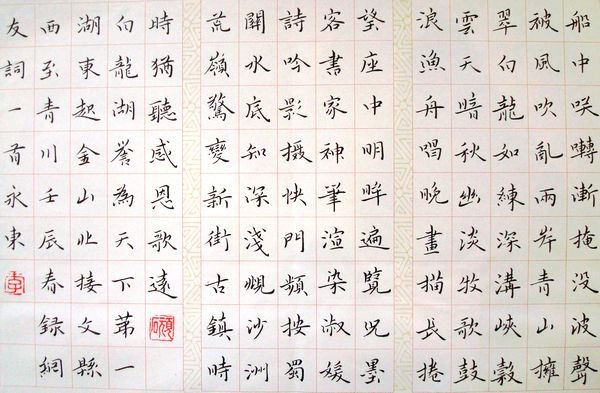 船中咲囀漸掩没波聲
被風吹亂兩岸青山擁
翠白龍如練深溝峽縠
雲天暗秋幽淡牧歌鼓
浪漁舟唱晚畫描長捲
望座中明眸遍覽兄墨
客書家神筆渲染淑媛
詩吟影攝快門頻按蜀
水底知深淺沙洲
荒嶺驚變新街古鎮時
時猶聽感恩歌遠
白龍湖譽為天下第一
湖東起金山北接文縣
西至青川壬辰春録網
友詞一首永東